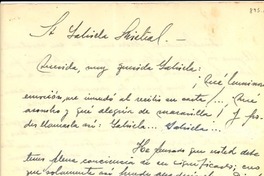 St Gabriela Mistral. -
Querida, muy querida Gabriela:
¡ Qué luminosa
emoción, me inundó al recibir su carta,... ¡ Qué
asombro y qué alegría de maravilla! Y po-
der llamarla así: Gabriela... Gabriela...
He pensado que usted debe
tener plena conciencia de su significado; creo
que solamente así puede